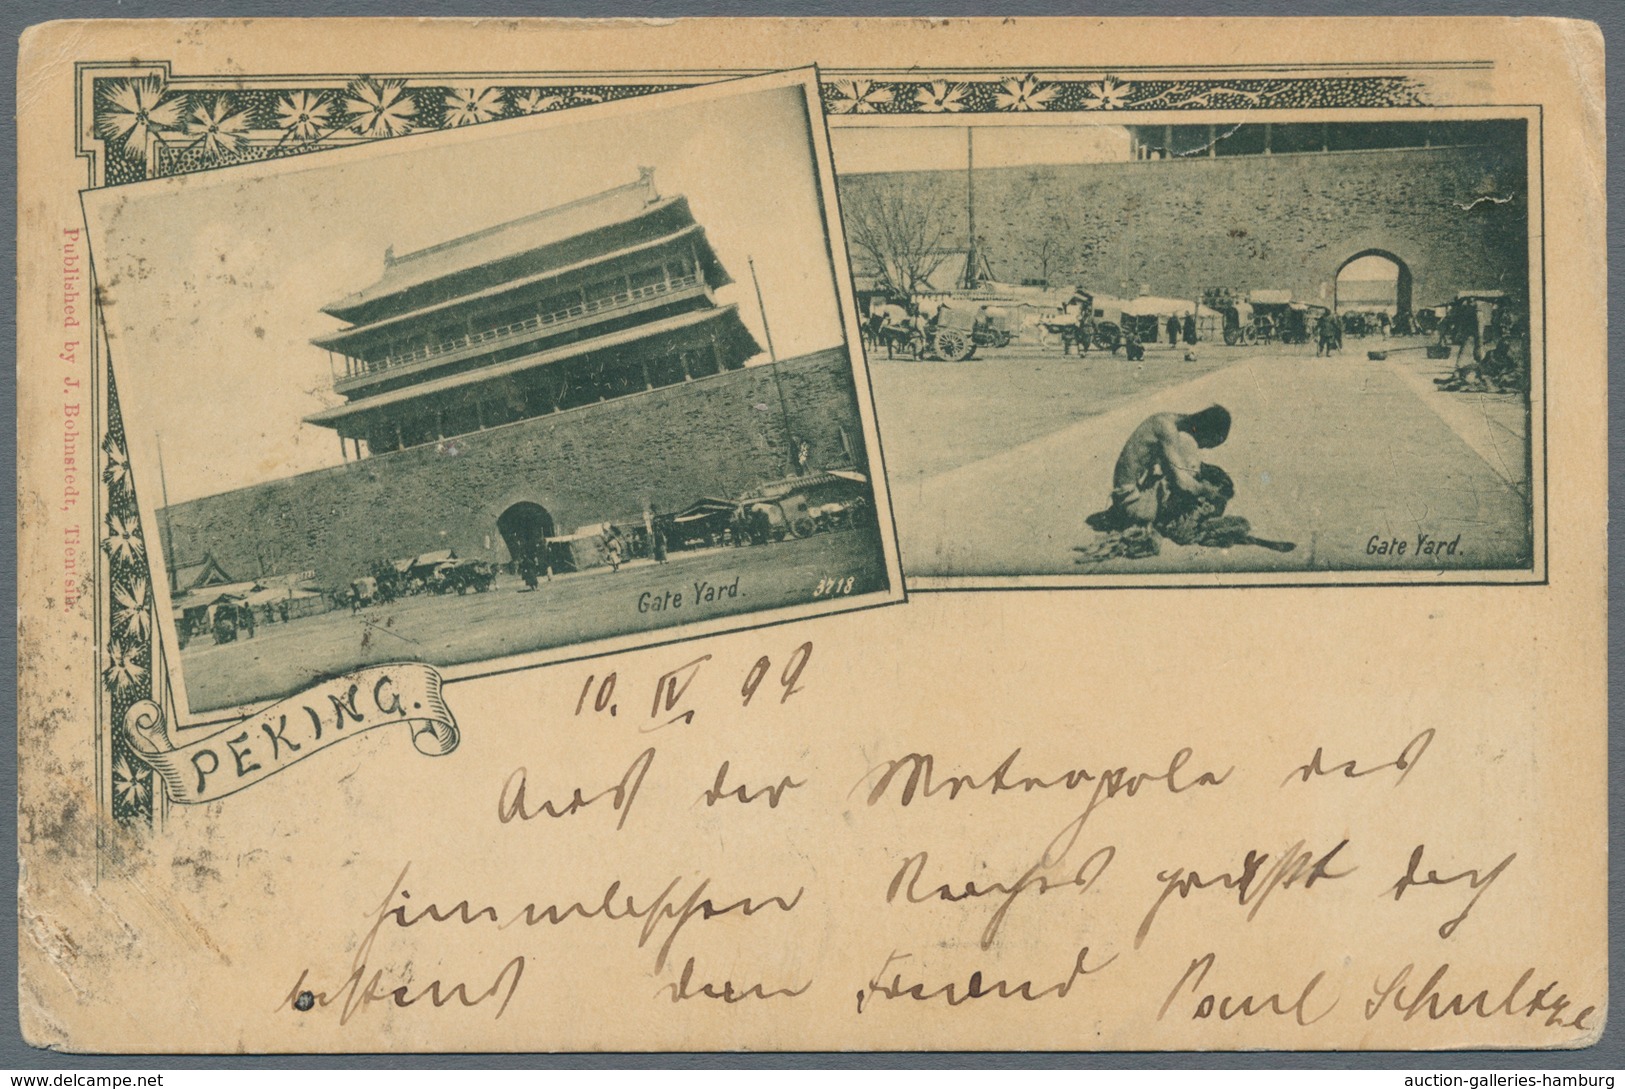 Published by J. Bohnstedt, Tientsin.
Gate Yard.
3718
Gate Yard.
PEKING.
10. IV. 99
Aus der Metropole des
himmlischen Reiches grüsst dich
bestens dein Freund Paul Schultze
auction-galleries-hamburg